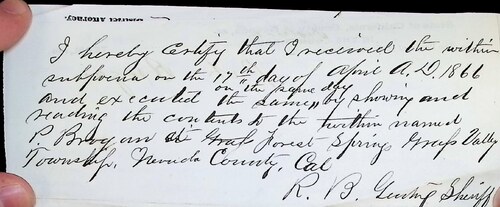 District Attorney.
I hereby Certify that I received the within
subpoena on the 17th day of April A.D. 1866
on the same day
and executed the same by showing and
reading the contents to the within named
P. Brogan at Grass Forest Springs Grass Valley
Township, Nevada County, Cal
R. B. Sheriff